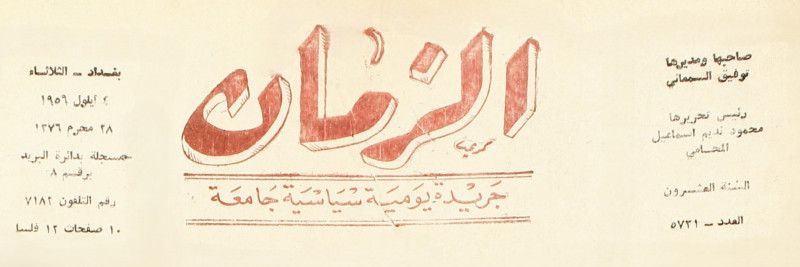 الزمان
كريم
جريدة يومية سياسية جامعة
صاحبها ومديرها
توفيق السمعاني
رئيس تحريرها
محمود نديم اسماعيل
المحامي
السنة العشرون
العدد – ٥٧٣١
بغداد – الثلاثاء
٤ ايلول ١٩٥٦
٢٨ محرم ١٣٧٦
مسجلة بدائرة البريد
برقم ٨
رقم التلفون ٧١٨٢
١٠ صفحات ١٢ فلسا